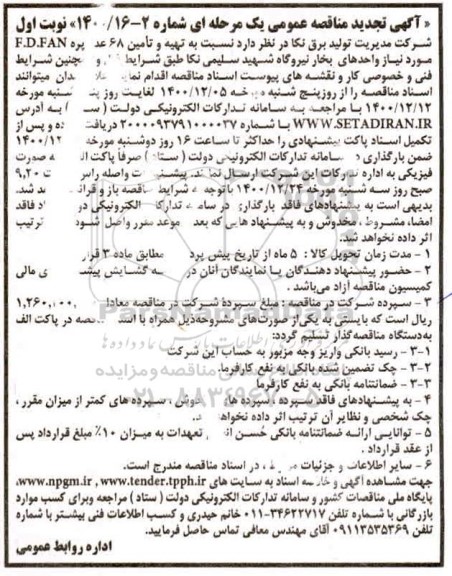 « آگهی تجدید مناقصه عمومی یک مرحله ای شماره ۲-۱۶/۱۴۰۰» نوبت اول
شرکت مدیریت تولید برق نکا در نظر دارد نسبت به تهیه و تأمین ۶۸ عدد پره F.D.FAN
مورد نیاز واحدهای بخار نیروگاه شهید سلیمی نکا طبق شرایط و همچنین شرایط
فنی و خصوصی کار و نقشه های پیوست اسناد مناقصه اقدام نماید میتوانند
اسناد مناقصه را از روز پنج شنبه مورخه ۱۴۰۰/۱۲/۰۵ لغایت روز پنج شنبه مورخه
۱۴۰۰/۱۲/۱۲ با مراجعه به سامانه تدارکات الکترونیکی دولت ( ستاد ) به آدرس
WWW.SETADIRAN.IR با شماره ۲۰۰۰۰۹۳۷۹۱۰۰۰۰۳۷ دریافت و پس از
تکمیل اسناد پاکت پیشنهادی را حداکثر تا ساعت ۱۶ روز دوشنبه مورخه ۱۴۰۰/۱۲
ضمن بارگذاری سامانه تدارکات الکترونیکی دولت ( ستاد ) صرفاً پاکت الف صورت
فیزیکی به اداره تدارکات این شرکت ارسال نمایند پیشنهادات واصله رأس ۹،۳۰
صبح روز سه شنبه مورخه ۱۴۰۰/۱۲/۲۴ با توجه به شرایط مناقصه باز و شد.
بدیهی است به پیشنهادهای فاقد بارگذاری در سامانه تدارکات الکترونیکی فاقد
امضاء، مشروط، مخدوش و به پیشنهادهایی که بعد موعد مقرر واصل شود ترتیب
اثر داده نخواهد شد.
۱ - مدت زمان تحویل کالا : ۵ ماه از تاریخ پیش پرداخت مطابق ماده ۳ قرارداد
۲ - حضور پیشنهاد دهندگان یا نمایندگان آنان در گشایش مالی
کمیسیون مناقصه آزاد می‌باشد .
۳ - سپرده شرکت در مناقصه : مبلغ سپرده شرکت در مناقصه معادل ۱,۲۶۰,۰۰۰,
ریال است که بایستی به یکی از صورت‌های مشروحه ذیل همراه با اسناد مناقصه در پاکت الف
به دستگاه مناقصه‌گذار تسلیم گردد:
۳-۱ - رسید بانکی واریز وجه مزبور به حساب این شرکت
۳-۲ - چک تضمین شده بانکی به نفع کارفرما.
۳-۳ - ضمانتنامه بانکی به نفع کارفرما
۴ - به پیشنهادهای فاقد سپرده ، سپرده های مخدوش ، سپرده‌های کمتر از میزان مقرر ،
چک شخصی و نظایر آن ترتیب اثر داده نخواهد شد.
۵ - توانایی ارائه ضمانتنامه بانکی حسن انجام تعهدات به میزان ۱۰٪ مبلغ قرارداد پس
از عقد قرارداد .
۶ - سایر اطلاعات و جزئیات ، در اسناد مناقصه مندرج است.
جهت مشاهده آگهی و خلاصه اسناد به سایت های www.npgm.ir , www.tender.tpph.ir،
پایگاه ملی مناقصات کشور و سامانه تدارکات الکترونیکی دولت ( ستاد ) مراجعه وبرای کسب موارد
بازرگانی با شماره تلفن ۳۴۶۲۲۷۱۷-۰۱۱ خانم حیدری و کسب اطلاعات فنی بیشتر با شماره
تلفن ۰۹۱۱۳۵۳۵۳۶۹ آقای مهندس معافی تماس حاصل فرمایید.
اداره روابط عمومی